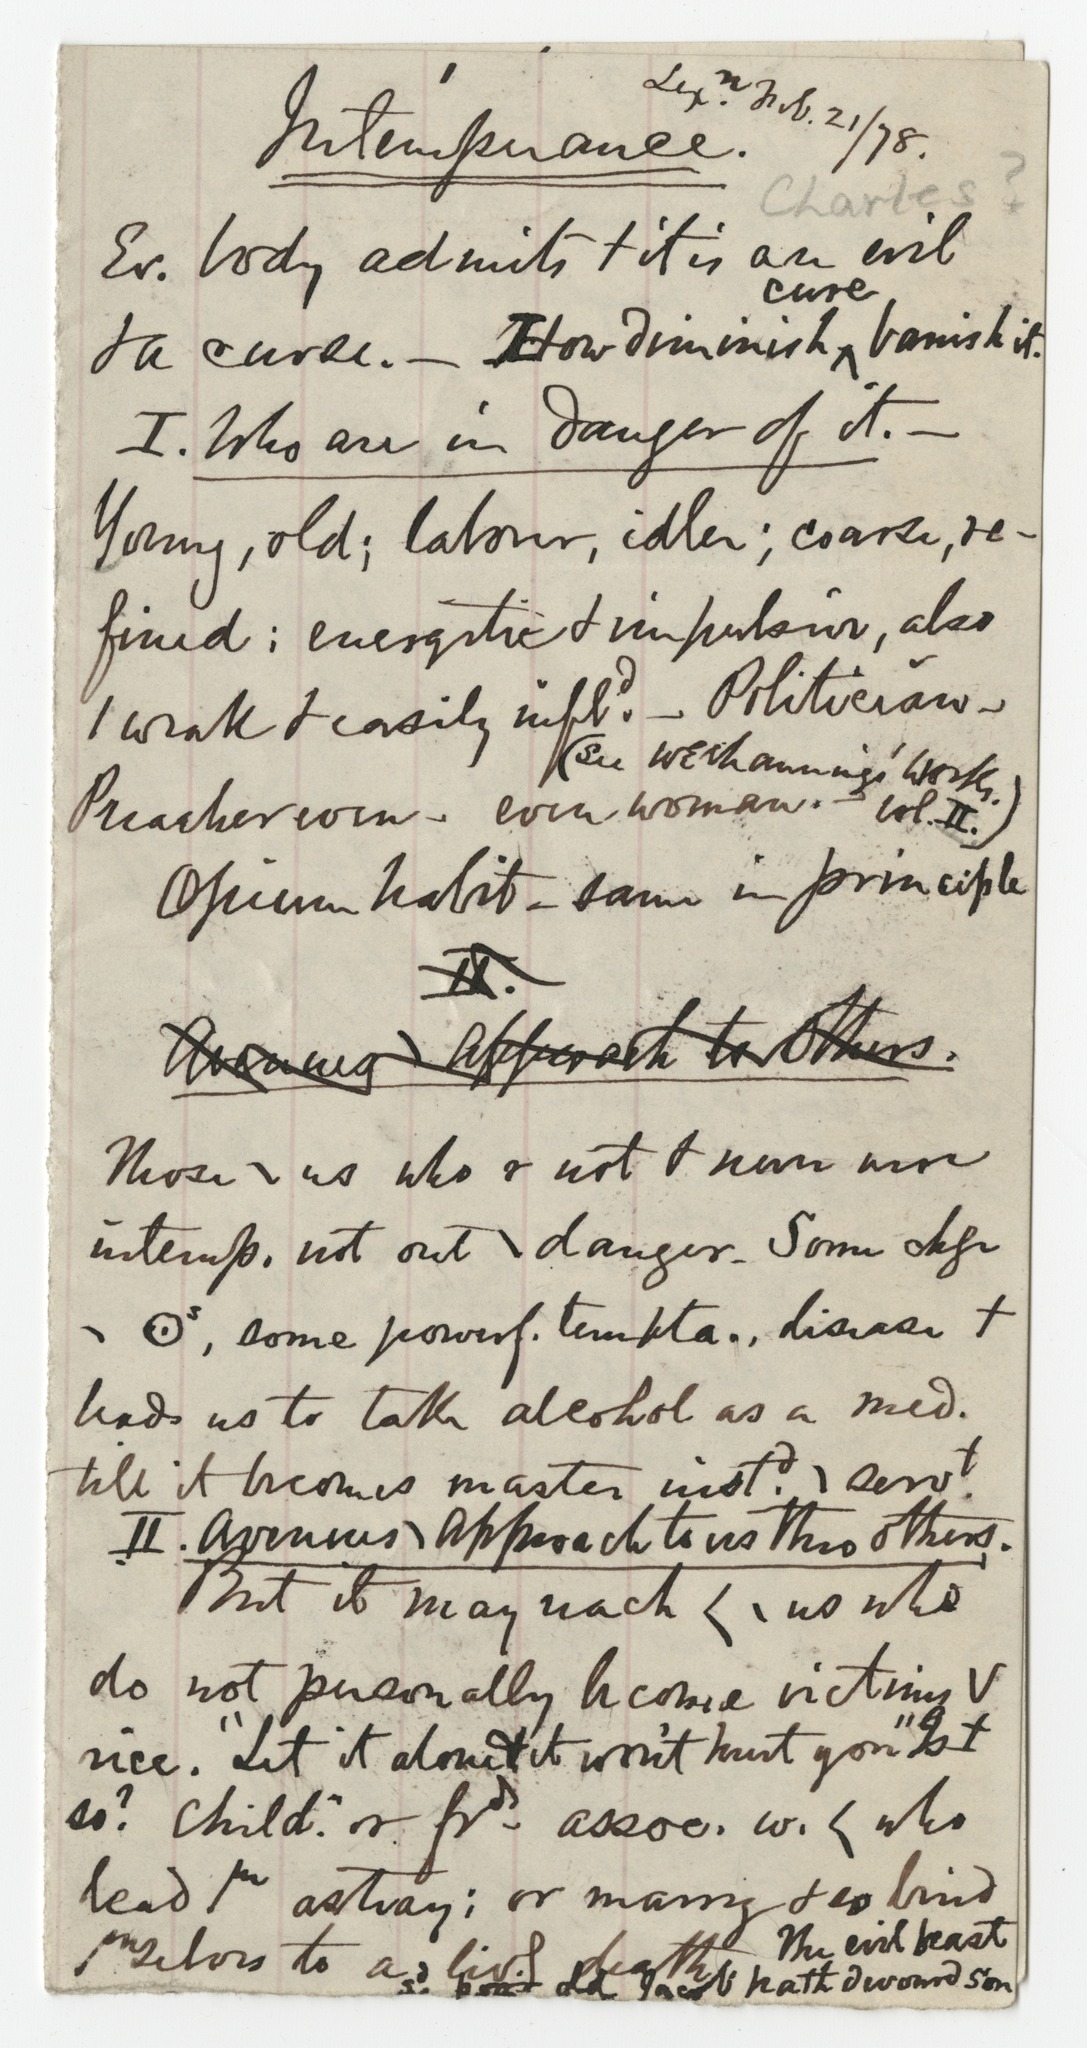 Intemperance.
Lexn. Feb. 21/78.
Charles?
Ev. body admits t it is an evil
& a curse. — How diminish, cure, banish it.
I. Who are in danger of it. —
Young, old; laborer, idler; coarse, re-
fined; energetic & impulsive, also
/ weak & easily infld. — Politician —
(See WEChanning's Works.
Preacher even - even woman. - vol. II.)
Opium habit - same in principle
II.
Avenues \ Approach to Others.
Those \ us who r not & never were
intemp. not out \ danger. Some chge
\ ⊙s, some powerf. tempta., disease t
leads us to take alcohol as a med.
till it becomes master instd. \ servt.
II. Avenues \ Approach to us thro others.
But it may reach < \ us who
do not personally become victims V
vice. "Let it alone & it won't hurt you" Is t
so? Childn. or frds - assoc. w. < who
lead /m astray; or marry & so bind
/mselves to a livg death. The evil beast
sd. poor old Jacob hath devoured son